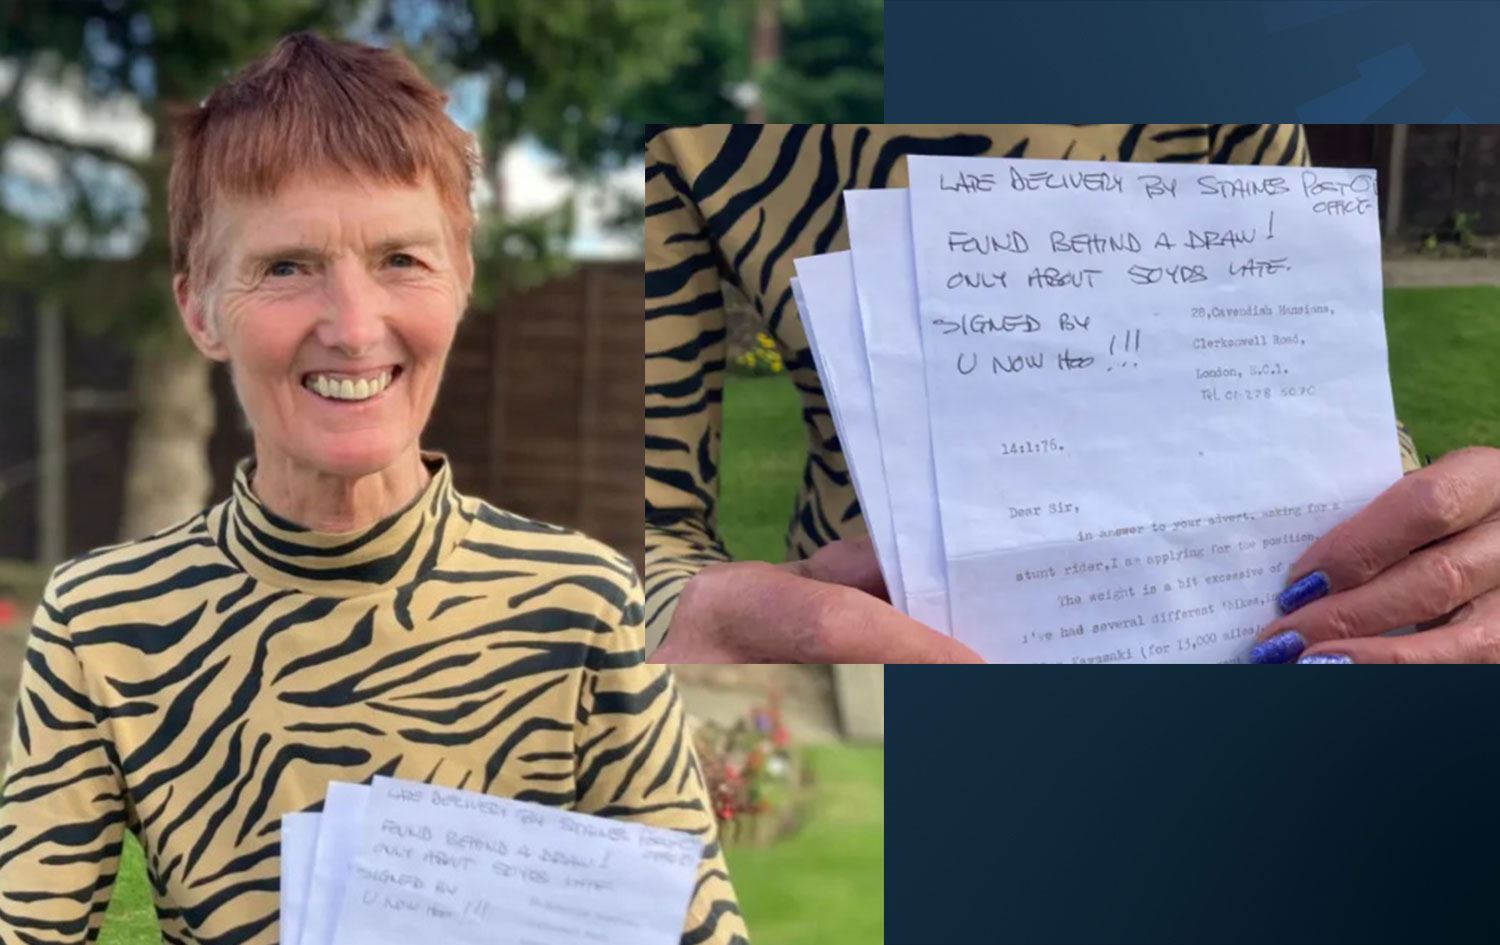 LATE DELIVERY BY STAINES POST O
OFFICE
FOUND BEHIND A DRAW!
ONLY ABOUT 50YRS LATE.
SIGNED BY
U NOW HOO !!!
28,Cavendish Mansions,
Clerkenwell Road,
London, E.C.1.
Tel. 01 278 5070
14:1:76.
Dear Sir,
in answer to your advert, asking for a
stunt rider,I am applying for the position.
The weight is a bit excessive of
i've had several different 'bikes,
Kawasaki (for 15,000 miles)
LATE DELIVERY BY STAINES POST
OFFICE
FOUND BEHIND A DRAW!
ONLY ABOUT 50YRS LATE
SIGNED BY
U NOW HOO !!!